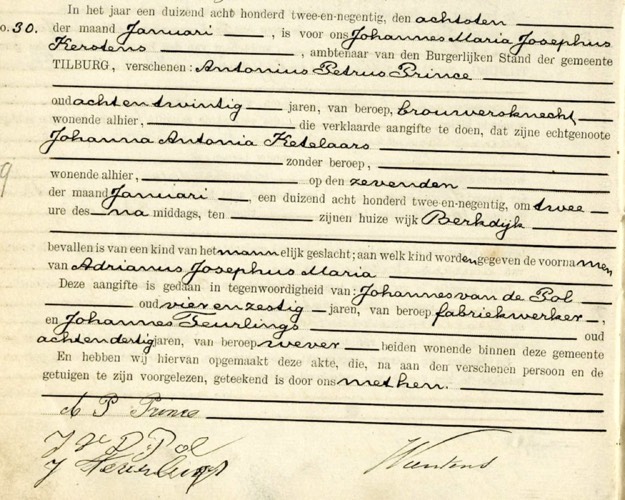 In het jaar een duizend acht honderd twee-en-negentig, den achtsten
o. 30. der maand Januari, is voor ons Johannes Maria Josephus
Kerstens, ambtenaar van den Burgerlijken Stand der gemeente
TILBURG, verschenen: Antonius Petrus Prince
oud achtentwintig jaren, van beroep, brouwersknecht
wonende alhier, die verklaarde aangifte te doen, dat zijne echtgenoote
Johanna Antonia Ketelaars
zonder beroep,
wonende alhier, op den zevenden
der maand Januari, een duizend acht honderd twee-en-negentig, om twee
ure des na middags, ten zijnen huize wijk Berkdijk
bevallen is van een kind van het mannelijk geslacht; aan welk kind worden gegeven de voornamen
van Adrianus Josephus Maria
Deze aangifte is gedaan in tegenwoordigheid van: Johannes van de Pol
oud vierenzestig jaren, van beroep fabriekwerker,
en Johannes Teurlings oud
achtendertig jaren, van beroep wever beiden wonende binnen deze gemeente
En hebben wij hiervan opgemaakt deze akte, die, na aan den verschenen persoon en de
getuigen te zijn voorgelezen, geteekend is door ons met hen.
A P Prince
J v D Pol
J Teurlings